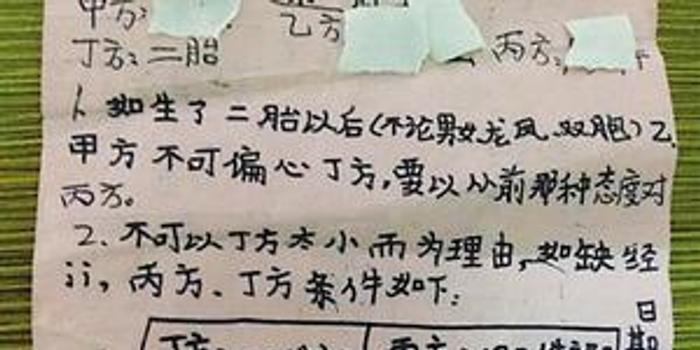 甲方:
乙方
丁方:二胎
丙方:
1、如生了二胎以后(不论男女龙凤双胞)乙
甲方不可偏心丁方,要以从前那种态度对
丙方。
2、不可以丁方太小而为理由,如缺经
济,丙方、丁方条件如下:
日
期
丁方
丙方